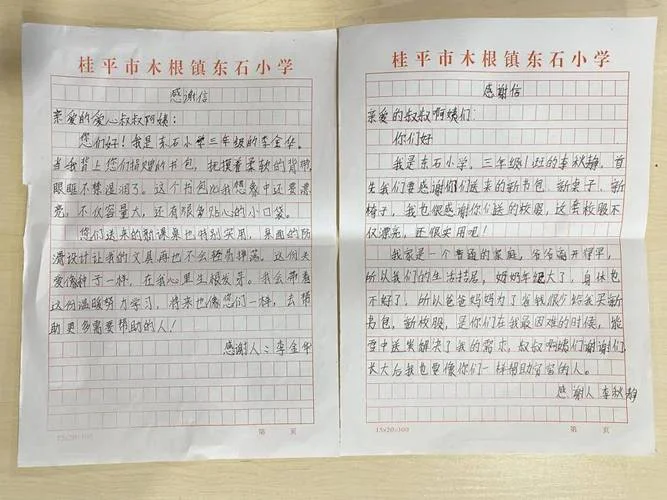 桂平市木根镇东石小学
感谢信
亲爱的爱心叔叔啊姨:
您们好!我是东石小学三年级的李金华。
当我背上您们捐赠的书包,抚摸着柔软的背带,
眼眶不禁湿润了。这个书包比我想象中还要漂
亮,不仅容量大,还有很多贴心的小口袋。
您们送来的新课桌也特别实用,桌面的防
滑设计让我的文具再也不会轻易掉落。这份关
爱像种子一样,在我心里生根发芽。我会带着
这份温暖努力学习,将来也像您们一样,去帮
助更多需要帮助的人!
感谢人:李金华
15x20=300
第 页
桂平市木根镇东石小学
感谢信
亲爱的叔叔啊姨们:
你们好
我是东石小学,三年级1班的李秋静,首
先我们要感谢你们送来的新书包,新桌子,新
椅子,我也很感谢你们送的校服,这套校服不
仅漂亮,还很实用呢!
我家是一个普通的家庭,爷爷离开得早,
所以我们的生活拮据,奶奶年纪大了,身体也
不好了,所以爸爸妈妈为了省钱很少给我买新
书包,新校服,是你们在我最困难的时候,能
雪中送炭解决了我的需求,叔叔啊姨们谢谢你们,
长大后我也要像你们一样帮助的人。
感谢人 李秋静
15x20=300
第 页